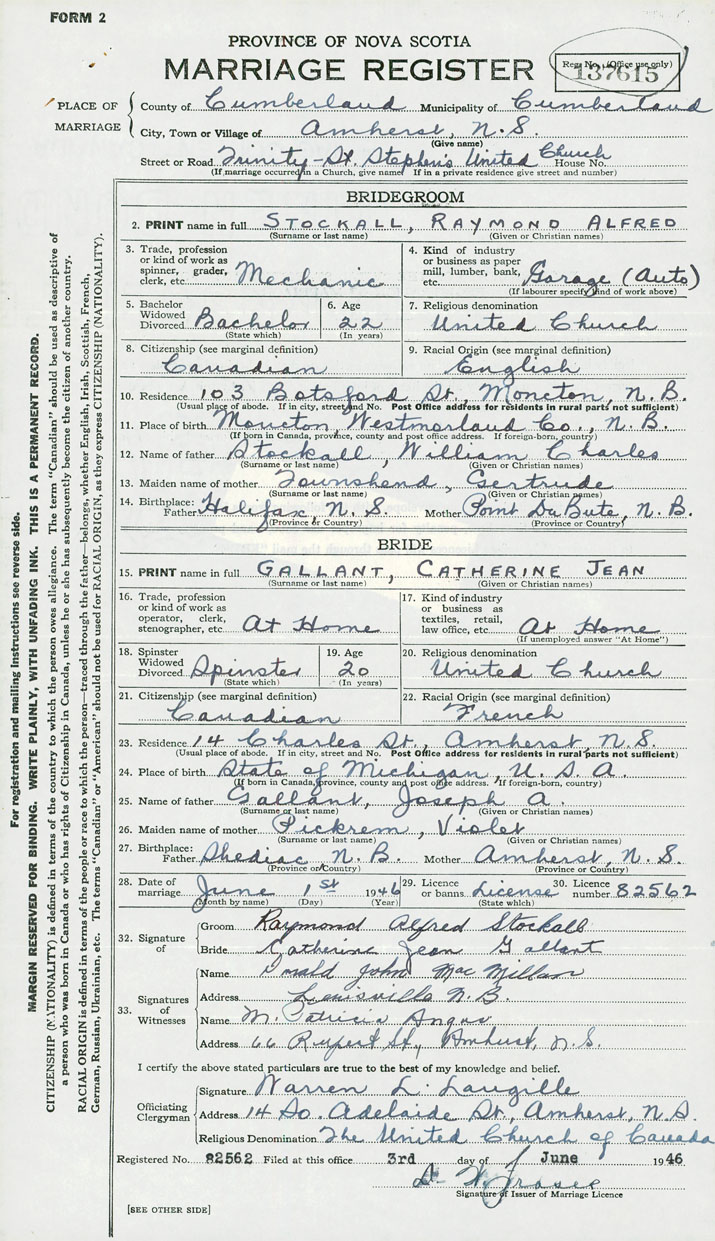 FORM 2
PROVINCE OF NOVA SCOTIA
MARRIAGE REGISTER
Reg. No. (Office use only)
137615
PLACE OF MARRIAGE
County of Cumberland Municipality of Cumberland
City, Town or Village of Amherst, N.S.
(Give name)
Street or Road Trinity-St. Stephen's United Church House No.
(If marriage occurred in a Church, give name) If in a private residence give street and number)
BRIDEGROOM
2. PRINT name in full STOCKALL, RAYMOND ALFRED
(Surname or last name) (Given or Christian names)
3. Trade, profession or kind of work as spinner, grader, clerk, etc. Mechanic
4. Kind of industry or business as paper mill, lumber, bank, etc. Garage (Auto)
(If labourer specify kind of work above)
5. Bachelor Widowed Divorced Bachelor
(State which)
6. Age 22
(In years)
7. Religious denomination
United Church
8. Citizenship (see marginal definition)
Canadian
9. Racial Origin (see marginal definition)
English
10. Residence 103 Botsford St., Moncton, N.B.
(Usual place of abode. If in city, street and No. Post Office address for residents in rural parts not sufficient)
11. Place of birth Moncton, Westmorland Co., N.B.
(If born in Canada, province, county and post office address. If foreign-born, country)
12. Name of father Stockall, William Charles
(Surname or last name) (Given or Christian names)
13. Maiden name of mother Townshend, Gertrude
(Surname or last name) (Given or Christian names)
14. Birthplace: Father Halifax, N.S. Mother Point DuBute, N.B.
(Province or Country) (Province or Country)
BRIDE
15. PRINT name in full GALLANT, CATHERINE JEAN
(Surname or last name) (Given or Christian names)
16. Trade, profession or kind of work as operator, clerk, stenographer, etc. At Home
17. Kind of industry or business as textiles, retail, law office, etc. At Home
(If unemployed answer "At Home")
18. Spinster Widowed Divorced Spinster
(State which)
19. Age 20
(In years)
20. Religious denomination
United Church
21. Citizenship (see marginal definition)
Canadian
22. Racial Origin (see marginal definition)
French
23. Residence 14 Charles St., Amherst, N.S.
(Usual place of abode. If in city, street and No. Post Office address for residents in rural parts not sufficient)
24. Place of birth State of Michigan, U.S.A.
(If born in Canada, province, county and post office address. If foreign-born, country)
25. Name of father Gallant, Joseph A.
(Surname or last name) (Given or Christian names)
26. Maiden name of mother Pickrem, Violet
(Surname or last name) (Given or Christian names)
27. Birthplace: Father Shediac, N.B. Mother Amherst, N.S.
(Province or Country) (Province or Country)
28. Date of marriage June 1st 1946
(Month by name) (Day) (Year)
29. Licence or banns License
(State which)
30. Licence number 82562
32. Signature of
Groom Raymond Alfred Stockall
Bride Catherine Jean Gallant
33. Signatures of Witnesses
Name Donald John MacMillan
Address Lewisville N.B.
Name M. Patricia Angus
Address 66 Rupert St., Amherst, N.S.
I certify the above stated particulars are true to the best of my knowledge and belief.
Officiating Clergyman
Signature Warren L. Langille
Address 14 So. Adelaide St., Amherst, N.S.
Religious Denomination The United Church of Canada
Registered No. 82562 Filed at this office 3rd day of June 1946
Fraser
Signature of Issuer of Marriage Licence
[SEE OTHER SIDE]
For registration and mailing instructions see reverse side.
MARGIN RESERVED FOR BINDING. WRITE PLAINLY, WITH UNFADING INK. THIS IS A PERMANENT RECORD.
CITIZENSHIP (NATIONALITY) is defined in terms of the country to which the person owes allegiance. The term "Canadian" should be used as descriptive of
a person who was born in Canada or who has rights of Citizenship in Canada, unless he or she has subsequently become the citizen of another country.
RACIAL ORIGIN is defined in terms of the people or race to which the person—traced through the father—belongs, whether English, Irish, Scottish, French,
German, Russian, Ukrainian, etc. The terms "Canadian" or "American" should not be used for RACIAL ORIGIN, as they express CITIZENSHIP (NATIONALITY).